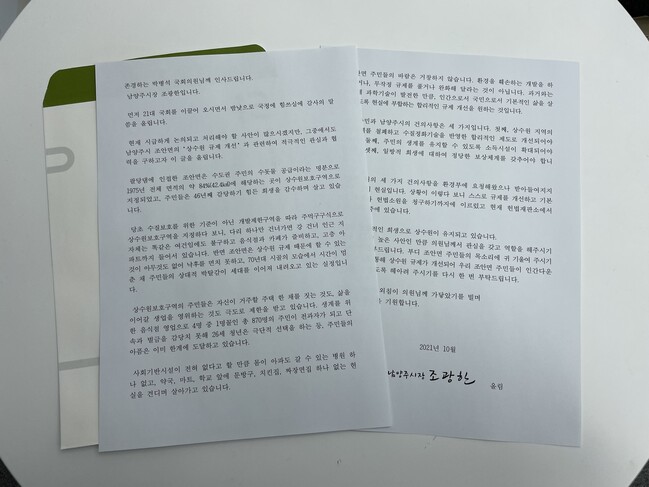 존경하는 박병석 국회의원님께 인사드립니다.
남양주시장 조광한입니다.
먼저 21대 국회를 이끌어 오시면서 밤낮으로 국정에 힘쓰심에 감사의 말
씀을 올립니다.
현재 시급하게 논의되고 처리해야 할 사안이 많으시겠지만, 그중에서도
남양주시 조안면의 '상수원 규제 개선' 과 관련하여 적극적인 관심과 협
력을 구하고자 이 글을 올립니다.
팔당댐에 인접한 조안면은 수도권 주민의 수돗물 공급이라는 명분으로
1975년 전체 면적의 약 84%(42.4㎢)에 해당하는 곳이 상수원보호구역으로
지정되었고, 주민들은 46년째 감당하기 힘든 희생을 감수하며 살고 있습
니다.
당초 수질보호를 위한 기준이 아닌 개발제한구역을 따라 주먹구구식으로
상수원보호구역을 지정하다 보니, 다리 하나만 건너가면 강 건너 인근 지
자체는 똑같은 여건임에도 불구하고 음식점과 카페가 즐비하고, 고층 아
파트까지 들어서 있습니다. 반면 조안면은 상수원 규제 때문에 할 수 있는
것이 아무것도 없어 낙후를 면치 못하고, 70년대 시골의 모습에서 시간이 멈
춘 채 주민들의 상대적 박탈감이 세대를 이어져 내려오고 있는 실정입니
다.
상수원보호구역의 주민들은 자신이 거주할 주택 한 채를 짓는 것도, 삶을
이어갈 생업을 영위하는 것도 극도로 제한을 받고 있습니다. 생계를 위
한 음식점 영업으로 4명 중 1명꼴인 총 870명의 주민이 전과자가 되고 단
속과 벌금을 감당치 못해 26세 청년은 극단적 선택을 하는 등, 주민들의
아픔은 이미 한계에 도달하고 있습니다.
사회기반시설이 전혀 없다고 할 만큼 몸이 아파도 갈 수 있는 병원 하
나 없고, 약국, 마트, 학교 앞에 문방구, 치킨집, 짜장면집 하나 없는 현
실을 견디며 살아가고 있습니다.
주민들의 바람은 거창하지 않습니다. 환경을 훼손하는 개발을 하
무작정 규제를 풀거나 완화해 달라는 것이 아닙니다. 과거와는
과학기술이 발전한 만큼, 인간으로서 국민으로서 기본적인 삶을 살
현실에 부합하는 합리적인 규제 개선을 원하는 것입니다.
주민과 남양주시의 건의사항은 세 가지입니다. 첫째, 상수원 지역의
철폐하고 수질정화기술을 반영한 합리적인 제도로 개선되어야
둘째, 주민의 생계를 유지할 수 있도록 소득시설이 확대되어야
셋째, 일방적 희생에 대하여 정당한 보상체계를 갖추어야 합니
세 가지 건의사항을 환경부에 요청해왔으나 받아들여지지
현실입니다. 상황이 이렇다 보니 스스로 규제를 개선하고 기본
헌법소원을 청구하기까지에 이르렀고 현재 헌법재판소에서
중에 있습니다.
희생으로 상수원이 유지되고 있습니다.
높은 사안인 만큼 의원님께서 관심을 갖고 역할을 해주시기
부탁드립니다. 부디 조안면 주민들의 목소리에 귀 기울여 주시기
통해 상수원 규제가 개선되어 우리 조안면 주민들이 인간다운
헤아려 주시기를 다시 한 번 부탁드립니다.
의원님께 가닿았기를 빌며
기원합니다.
2021년 10월
남양주시장 조광한 올림